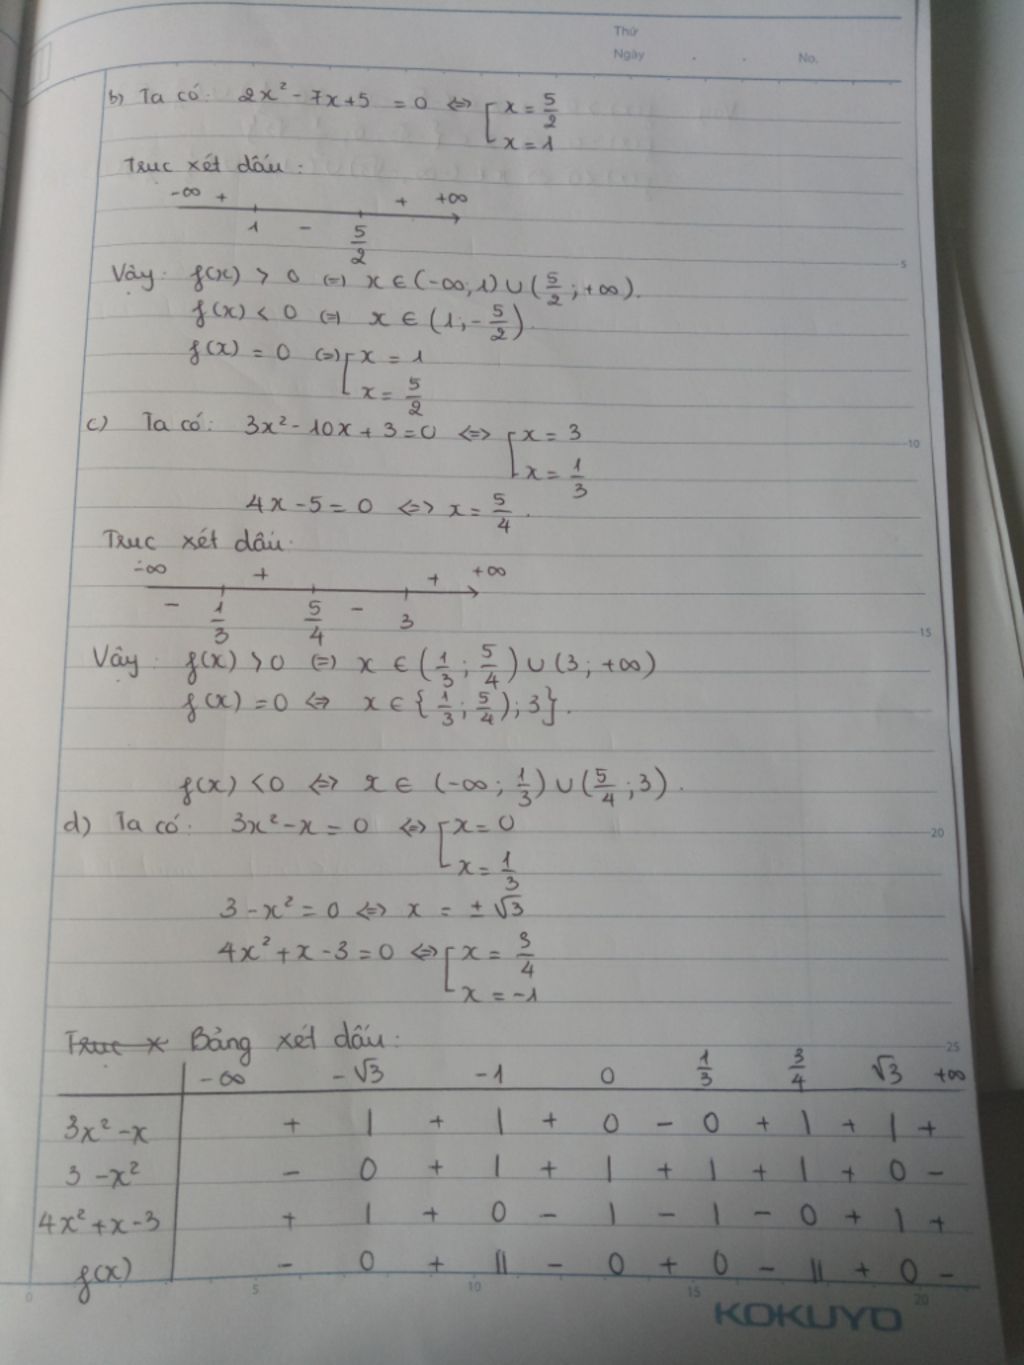 Thứ
Ngày . . No.
b) Ta có: 2x² - 7x + 5 = 0 <=> [ x = 5/2
x = 1
Trục xét dấu:
-∞ + + +∞
1 - 5/2
5
Vậy: f(x) > 0 (=) x ∈ (-∞; 1) ∪ (5/2; +∞).
f(x) < 0 (=) x ∈ (1; -5/2).
f(x) = 0 (=) [ x = 1
x = 5/2
c) Ta có: 3x² - 10x + 3 = 0 <=> [ x = 3
10
x = 1/3
4x - 5 = 0 <=> x = 5/4.
Trục xét dấu:
-∞ + + +∞
- 1/3 5/4 - 3
15
Vậy: f(x) > 0 (=) x ∈ (1/3; 5/4) ∪ (3; +∞)
f(x) = 0 <=> x ∈ {1/3; 5/4); 3}.
f(x) < 0 <=> x ∈ (-∞; 1/3) ∪ (5/4; 3).
d) Ta có: 3x² - x = 0 <=> [ x = 0
20
x = 1/3
3 - x² = 0 <=> x = ± √3
4x² + x - 3 = 0 <=> [ x = 3/4
x = -1
Trục x Bảng xét dấu:
25
-∞ -√3 -1 0 1/3 3/4 √3 +∞
3x² - x + | + | + 0 - 0 + | + | +
3 - x² - 0 + | + | + | + | + 0 -
4x² + x - 3 + | + 0 - | - | - 0 + | +
f(x) - 0 + || - 0 + 0 - || + 0 -
0 5 10 15 20
KOKUYO